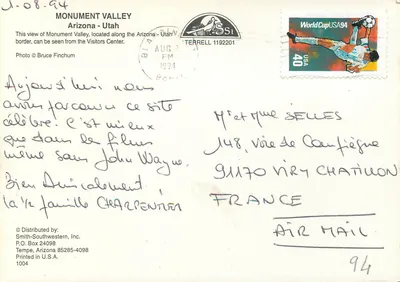 1-08-94
MONUMENT VALLEY
Arizona - Utah
This view of Monument Valley, located along the Arizona - Utah
border, can be seen from the Visitors Center.
Photo © Bruce Finchum
TERRELL 1192201
AUG
PM
1994
WorldCupUSA94
USA
40
Aujourd'hui nous
avons parcouru ce site
célèbre. C'est mieux
que dans les films
même sans John Wayne.
Bien Amicalement,
la 1/2 famille CHARPENTIER
Mr et Mme SELLES
148, voie de Compiègne
91170 VIRY CHATILLON
FRANCE
AIR MAIL
94
© Distributed by:
Smith-Southwestern, Inc.
P.O. Box 24098
Tempe, Arizona 85285-4098
Printed in U.S.A.
1004